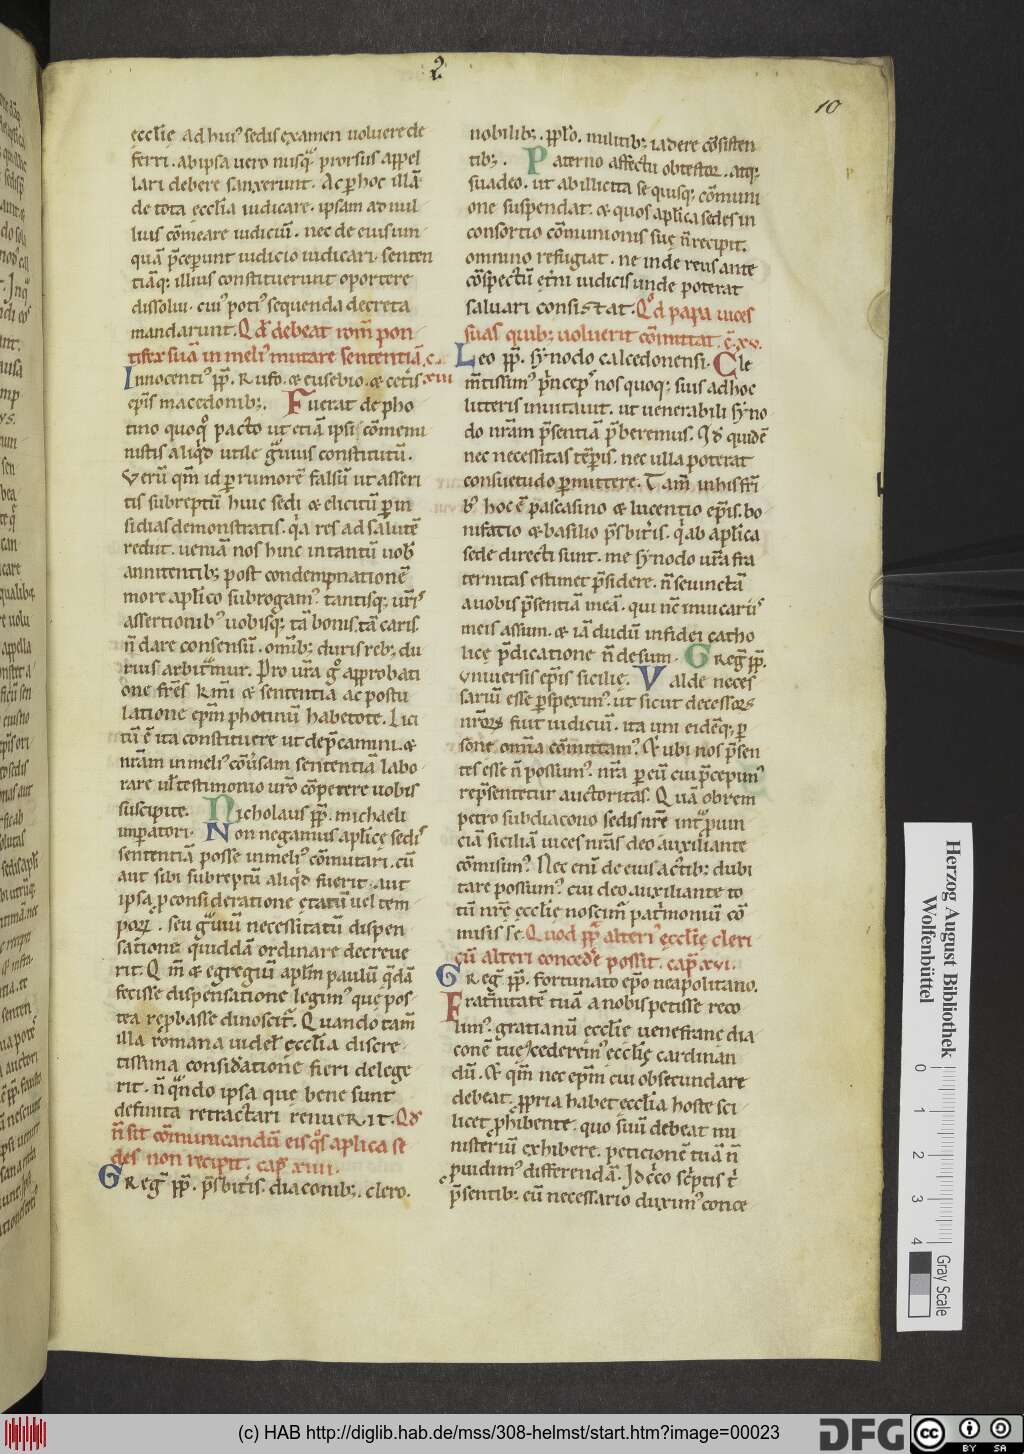 2
10
ęcclię ad hui᷒ sedis exam̄en uoluere de
ferri . ab ipsa uero nusq̄ prorsus appel
lari debere sanxerunt . Ac ꝑ hoc illā
de tota ęcclīa iudicare . ipsam ad nul
lius cōmeare iudiciū . nec de eius um
quā p̄ceperunt iudicio iudicari . senten
tiāq; illius constituerunt oportere
dissolui . cui᷒ poti᷒ sequenda decreta
mandarunt . Qd̄ debeat rom̄ pon
tifex suā in meli᷒ mutare sententiā . c.
xiii
Innocenti᷒ pp̄ . Rufo . & eusebio . & cet̄is
ep̄is macedonib; . Fuerat de pho
tino quoq᷒ pacto ut etiā ipsi cōmeni
nistis aliq̊d utile g̊uius constitutū .
Verū qm̄ id ꝑ rumorē falsū ut asseri
tis subreptū huic sedi & elicitū ꝑ in
sidias demonstratis . q̇a res ad salutē
rediit . ueniā nos hinc in tantū uob̄
annitentib; post condempnationē
more aplīco subrogam᷒ . tantisq; ur̄is
assertionib᷒ uobisq; tā bonis . tā caris .
n̄ dare consensū . omīb; duris reb; du
rius arbit̄mur . Pro ur̄a g̊ approbati
one fres̄ km̄i & sententia ac postu
latione ep̄m photinū habetote . Lici
tū ē ita constituere ut dep̄camini . &
nr̄am in meli᷒ cōuersam sententiā labo
rare ul̄ testimonio ur̄o cōperere uobis
suscipite . Nicholaus pp̄ . michaeli
imperatori . Non negamus aplīcę sedis
sententiā posse in meli᷒ cōmutari . cū
aut sibi subreptū aliq̊d fuerit . aut
ipsa ꝓ consideratione ętatū uel tem
poꝝ . seu g̊uiū necessitatū dispen
satione quiddā ordinare decreue
rit . Qm̄ & egregiū aplm̄ paulū q̇dā
fecisse dispensatione legim᷒ quę pos
tea rep̄basse dinoscit̄ . Quando tam̄
illa romana uidel; ęcclīa discre
tissima considatione fieri delege
rit . n̄ q̇ndo ipsa que bene sunt
definita retractari renuerit . Qd̄
n̄ sit cōmunicandū eis q̊s aplīca se
des non recipit . cap̄ xiiii .
Greg̅ pp̄ . p̄sbit̄is . diaconib; . clero .
nobilib; . pp̄lo . militib; iadere cōsisten
tib; . Paterno affectu obtestor . atq;
suadeo . ut ab illicita se quisq; cōmuni
one suspendat . & quos aplīca sedes in
consortio cōmunionis suę n̄ recipit .
omnino refugiat . ne inde reus ante
cōspectū et̄ni iudicis unde poterat
saluari consistat . Q̊d papa uices
suas quib; uoluerit cōmittat . c̄ . xv.
Leo pp̄ . synodo calcedonensi . Cle
m̄tissim᷒ p̄ncep᷒ nos quoq; suis ad hoc
litteris inuitauit . ut uenerabili syno
do nr̄am p̄sentiā p̄beremus . Id quidē
nec necessitas tēp̄is . nec ulla poterat
consuetudo ꝑmittere . Tam̄ in his fr̄i
b᷒ hoc ē pascasino & lucentio ep̄is . bo
nifatio & basilio p̄sbit̄is . q̇ ab aplīca
sede directi sunt . me synodo ur̄a fra
ternitas estimet p̄sidere . n̄ seiunctā
a uobis p̄sentiā meā . qui nc̄ in uicariis
meis assum . & iā dudū in fidei catho
licę p̄dicatione n̄ desum . Greg̅ pp̄ .
Vniuersis ep̄is sicilię . Valde neces
sariū esse ꝑspexim᷒ . ut sicut decessoꝝ
nr̄oꝝ fuit iudiciū . ita uni eidēq; ꝑ
sonę omīa cōmittam᷒ . & ubi nos p̄sen
tes esse n̄ possum᷒ . nr̄a ꝑ eū cui p̄cepim᷒
rep̄sentetur auctoritas . Quā ob rem
petro subdiacono sedis nr̄ę int̄ ꝓuin
ciā siciliā uices nr̄as deo auxiliante
cōmisim᷒ . Nec eni̅ de eius actib; dubi
tare possum᷒ . cui deo auxiliante to
tū nr̄ę ęcclię noscim̄ pat̄moniū cō
misisse . Quod pp̄ alteri᷒ ęcclię cleri
cū alteri concede possit . cap̄ . xvi .
Greg̅ pp̄ . fortunato ep̄o neapolitano .
Frat̄nitatē tuā a nobis petisse reco
lim᷒ . gratianū ęcclię uenefranę dia
conē tuę cedere in ęcclię cardinan
dū . & qm̄ nec ep̄m cui obsecundare
debeat . ꝓpria habet ęcclīa hoste sci
licet ꝓhibente . quo suū debeat mi
nisteriū exhibere . peticionē tuā n̄
ꝓuidim᷒ differendā . Idc̊o sc̄ptis t̄
p̄sentib; eū necessario duxim᷒ conce
Herzog August Bibliothek
Wolfenbüttel
0
1
2
3
4
Gray Scale
(c) HAB http://diglib.hab.de/mss/308-helmst/start.htm?image=00023
DFG
cc
BY SA